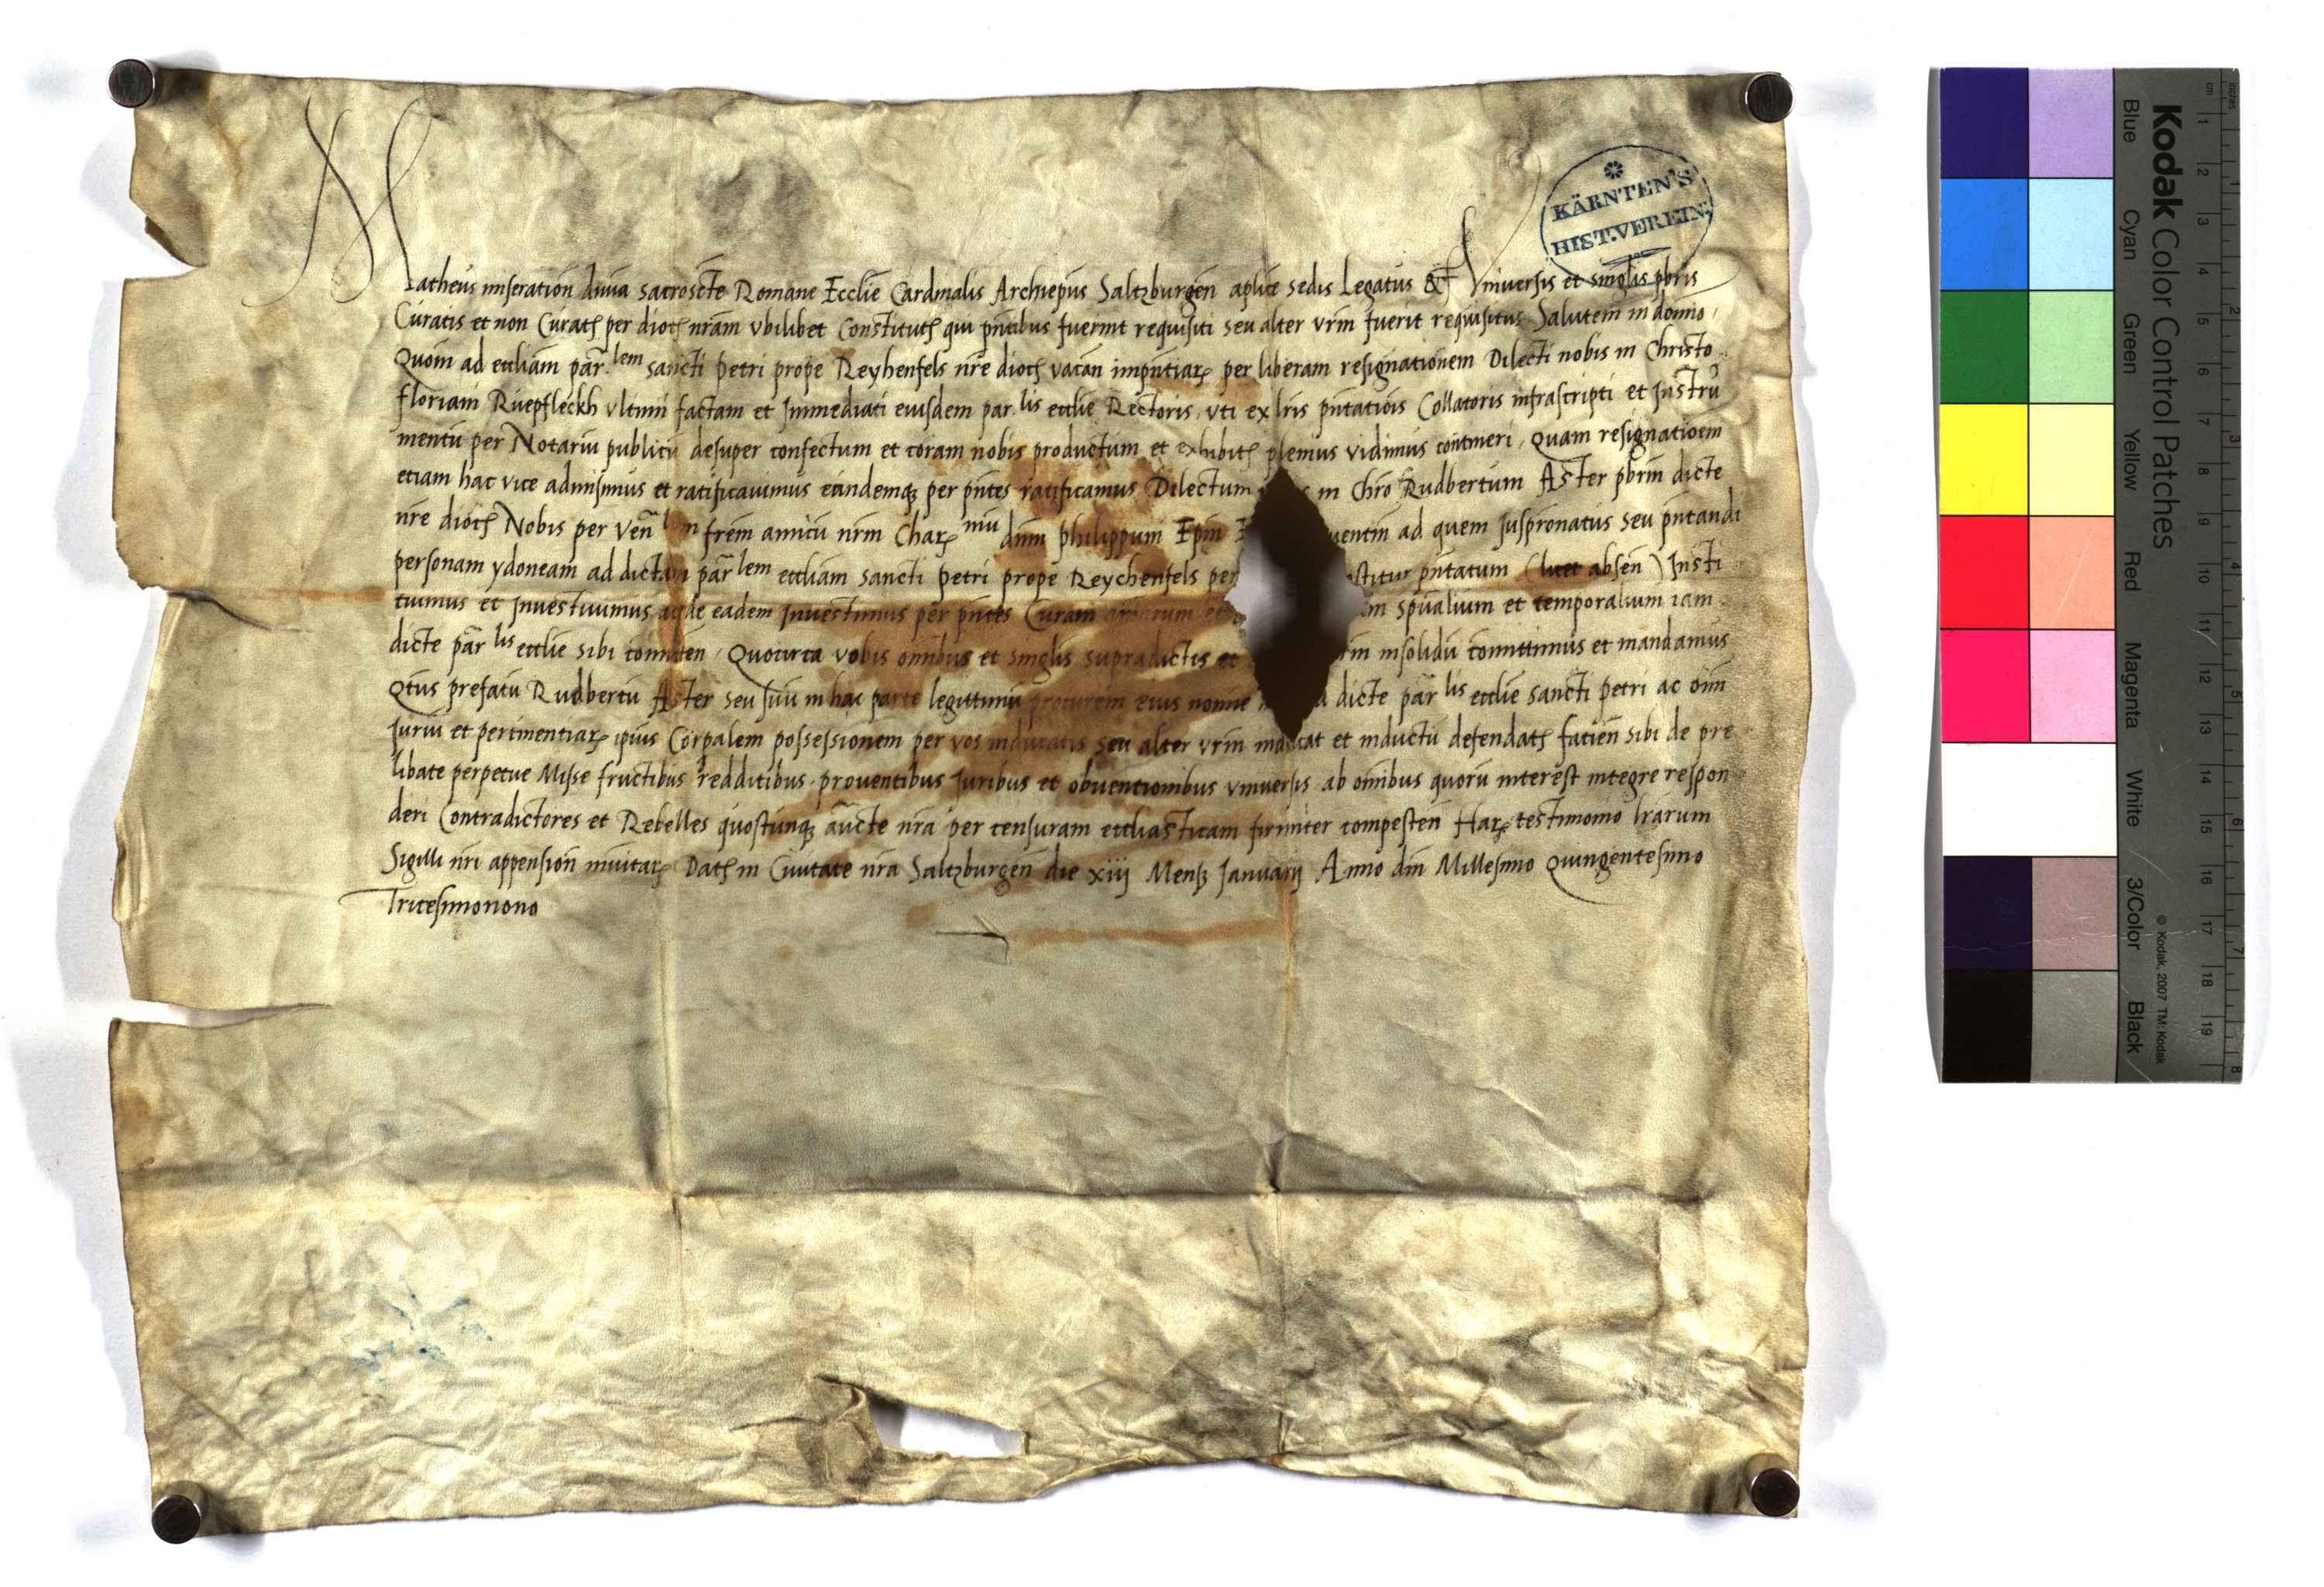 Matheus miseration diuia sacroscte Romane Ecclie Cardinalis Archiepus Saltzburgen aplice sedis Legatus &c Vniuersis et singlis pbris
Curatis et non Curatis per dioc nram vbilibet Constitutis qui pntibus fuerint requisiti seu alter vrm fuerit requisitus Salutem in domino
Quom ad eccliam par.lem sancti petri prope Reyhenfels nre dioc vacan impntiar per liberam resignationem Dilecti nobis in Christo
floriani Ruepfleckh vltimi factam et Immediati eiusdem par.lis ecclie Rectoris, vti ex lris pntatiois Collatoris infrascripti et Instru
mentu per Notariu publicu desuper confectum et coram nobis productum et exhibit plenius vidimus contineri, Quam resignatioem
etiam hac vice admisimus et ratificauimus eandemq per pntes ratificamus Dilectum in Chro Rudbertum Aster pbrm dicte
nre dioc Nobis per Ven lem frem amicu nrm Char mu dnm philippum Epm uentin ad quem Juspronatus seu pntandi
personam ydoneam ad dictam parlem eccliam sancti petri prope Reychenfels per pntatum (licet absen) Insti
tuimus et Inuestiuimus acde eadem Inuestimus per pntes Curam aiarum et spualium et temporalium iam
dicte parlis ecclie sibi comitten, Quocirca vobis omibus et singlis supradictis et vrm insolidu comittimus et mandamus
Qtus prefatu Rudbertu Aster seu suu in hac parte legittimu procurem eius nomie dicte parlis ecclie sancti petri ac oim
Juriu et pertinentiar ipius Corpalem possessionem per vos inducatis seu alter vrm inducat et inductu defendatis facien sibi de pre
libate perpetue Misse fructibus redditibus prouentibus Juribus et obuentionibus vniuersis ab omibus quoru interest integre respon
deri Contradictores et Rebelles quoscunq aucte nra per censuram eccliasticam firmiter compescen Har testimonio lrarum
Sigilli nri appension munitar Dat in Ciuitate nra Saltzburgen die xiij Mens Januarij Anno dni Millesimo Quingentesimo
Tricesimonono
KÄRNTEN'S
HIST.VEREIN.
Kodak Color Control Patches
Blue Cyan Green Yellow Red Magenta White 3/Color Black
© Kodak, 2007 TM: Kodak
cm 1 2 3 4 5 6 7 8 9 10 11 12 13 14 15 16 17 18 19
inches 1 2 3 4 5 6 7 8